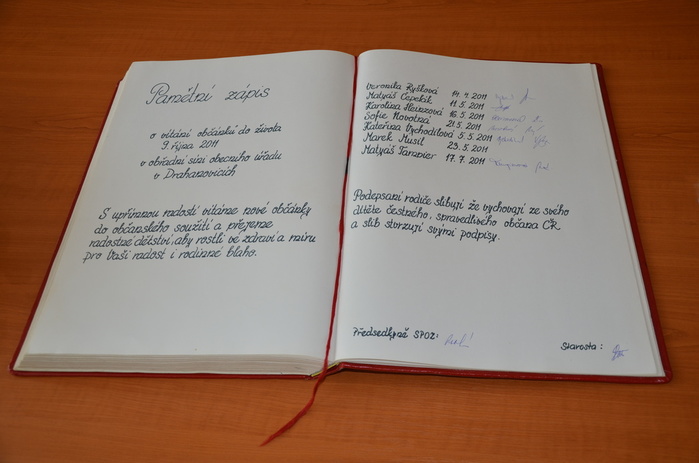 Pamětní zápis
o vítání občánků do života
9. října 2011
v obřadní síni obecního úřadu
v Drahanovicích
S upřímnou radostí vítáme nové občánky
do občanského soužití a přejeme
radostné dětství, aby rostli ve zdraví a míru
pro Vaši radost i rodinné blaho.
Veronika Ryšková 14. 4. 2011
Matyáš Čepelík 11. 5. 2011
Karolína Heinzová 16. 5. 2011
Sofie Novotná 21. 5. 2011
Kateřina Vychodilová 5. 5. 2011
Marek Musil 23. 5. 2011
Matyáš 17. 7. 2011
Podepsaní rodiče slibují, že vychovají ze svého
dítěte čestného, spravedlivého občana ČR
a slib stvrzují svými podpisy.
Předsedkyně SPOZ:
Starosta: